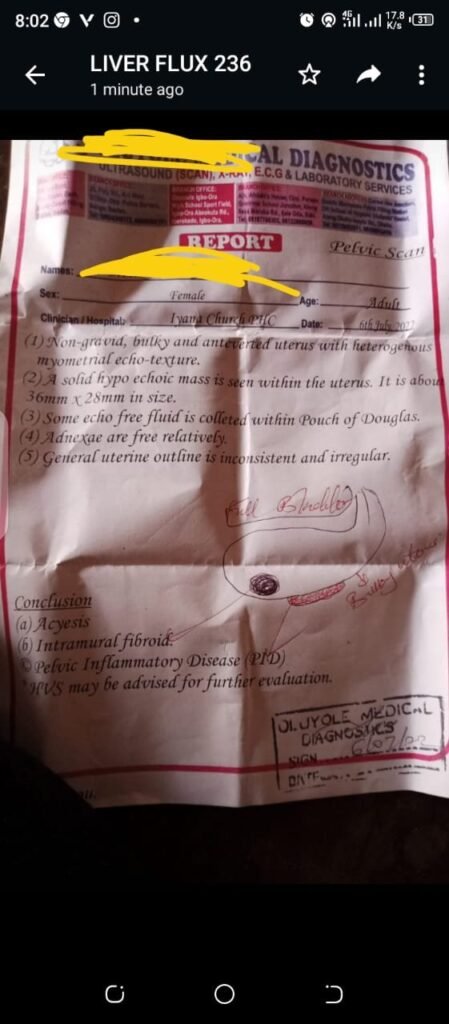 8:02
4G
17.8
K/s
31
LIVER FLUX 236
1 minute ago
CAL DIAGNOSTICS
ULTRASOUND (SCAN), X-RAY, E.C.G & LABORATORY SERVICES
BRANCH OFFICE:
REPORT
Pelvic Scan
Names:
Sex: Female Age: Adult
Clinician / Hospital: Iyana Church PHC Date: 6th July 2022
(1) Non-gravid, bulky and anteverted uterus with heterogenous
myometrial echo-texture.
(2) A solid hypo echoic mass is seen within the uterus. It is abou
36mm x 28mm in size.
(3) Some echo free fluid is colleted within Pouch of Douglas.
(4) Adnexae are free relatively.
(5) General uterine outline is inconsistent and irregular.
Full Bladder
Bulky uterus
Conclusion
(a) Acyesis
(b) Intramural fibroid.
(c) Pelvic Inflammatory Disease (PID)
*HVS may be advised for further evaluation.
OLUYOLE MEDICAL
DIAGNOSTICS
SIGN 6/07/22
DATE